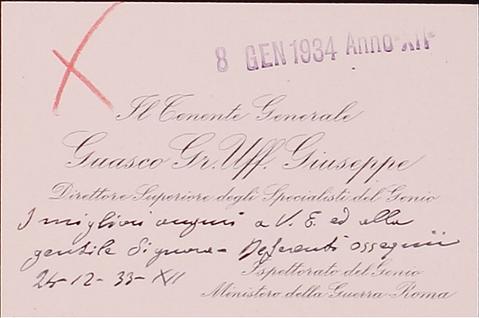 8 GEN 1934 Anno XII
Il Tenente Generale
Guasco Gr. Uff. Giuseppe
Direttore Superiore degli Specialisti del Genio
I migliori auguri a V. E. ed alla
gentile Signora - Deferenti ossequii
24-12-33-XII
Ispettorato del Genio
Ministero della Guerra-Roma